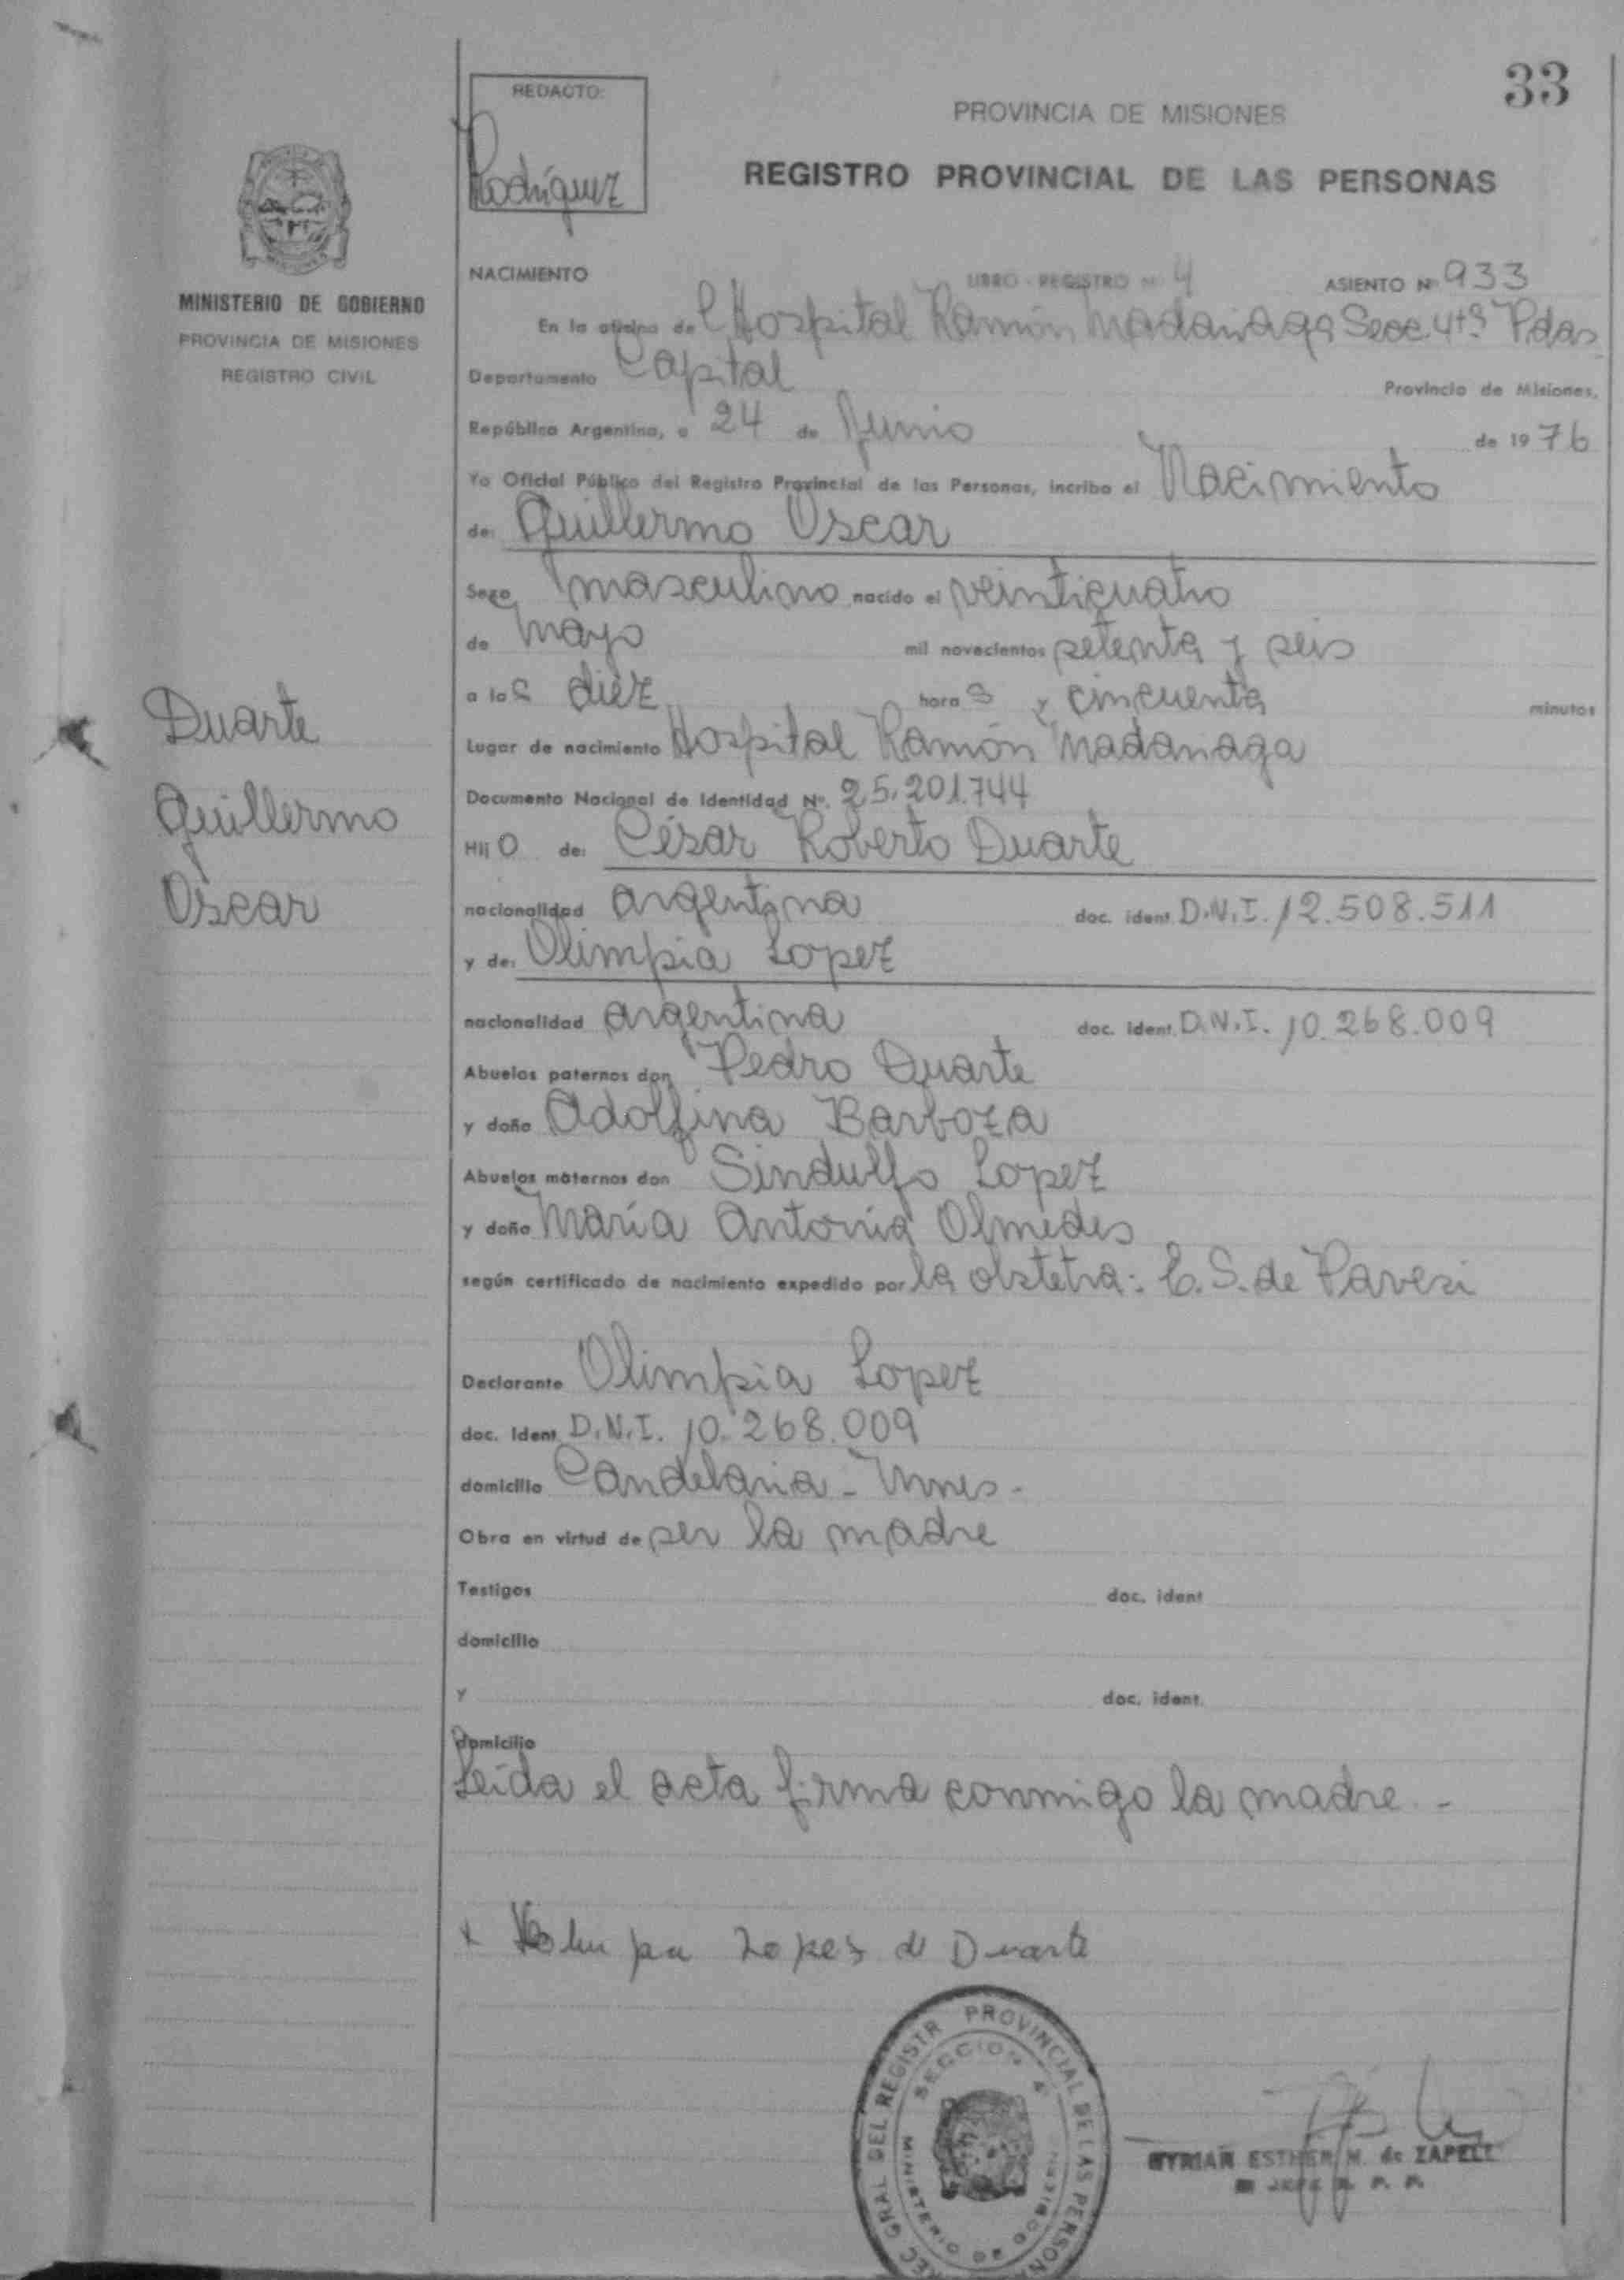 33
REDACTO:
Rodríguez
PROVINCIA DE MISIONES
REGISTRO PROVINCIAL DE LAS PERSONAS
MINISTERIO DE GOBIERNO
PROVINCIA DE MISIONES
REGISTRO CIVIL
NACIMIENTO LIBRO - REGISTRO Nº 4 ASIENTO Nº 933
En la oficina del Hospital Ramón Madariaga Secc. 4ta Pdas
Departamento Capital Provincia de Misiones,
República Argentina, a 24 de Junio de 1976
Yo Oficial Público del Registro Provincial de las Personas, incribo el Nacimiento
de: Guillermo Oscar
Sexo masculino nacido el veinticuatro
de mayo mil novecientos setenta y seis
a las diéz horas y cincuenta minutos
Lugar de nacimiento Hospital Ramón Madariaga
Documento Nacional de Identidad Nº. 25.201.744
Hijo de: César Roberto Duarte
nacionalidad argentina doc. ident. D.N.I. 12.508.511
y de: Olimpia Lopez
nacionalidad argentina doc. ident. D.N.I. 10.268.009
Abuelos paternos don Pedro Duarte
y doña Adolfina Barboza
Abuelos maternos don Sindulfo Lopez
y doña María Antonia Olmedes
según certificado de nacimiento expedido por la obstetra: C.S. de Pavesi
Declarante Olimpia Lopez
doc. Ident. D.N.I. 10.268.009
domicilio Candelaria - Mnes -
Obra en virtud de ser la madre
Testigos doc. ident
domicilio
y doc. ident.
domicilio
Leída el acta firma conmigo la madre. -
Duarte
Guillermo
Oscar
Lopes de Duarte
GRAL DEL REGISTR PROVINCIAL DE LAS PERSONA
SECCION 4
MINISTERIO DE GOBIERNO
MYRIAN ESTHER M. de ZAPELL
JEFE R. P. P.